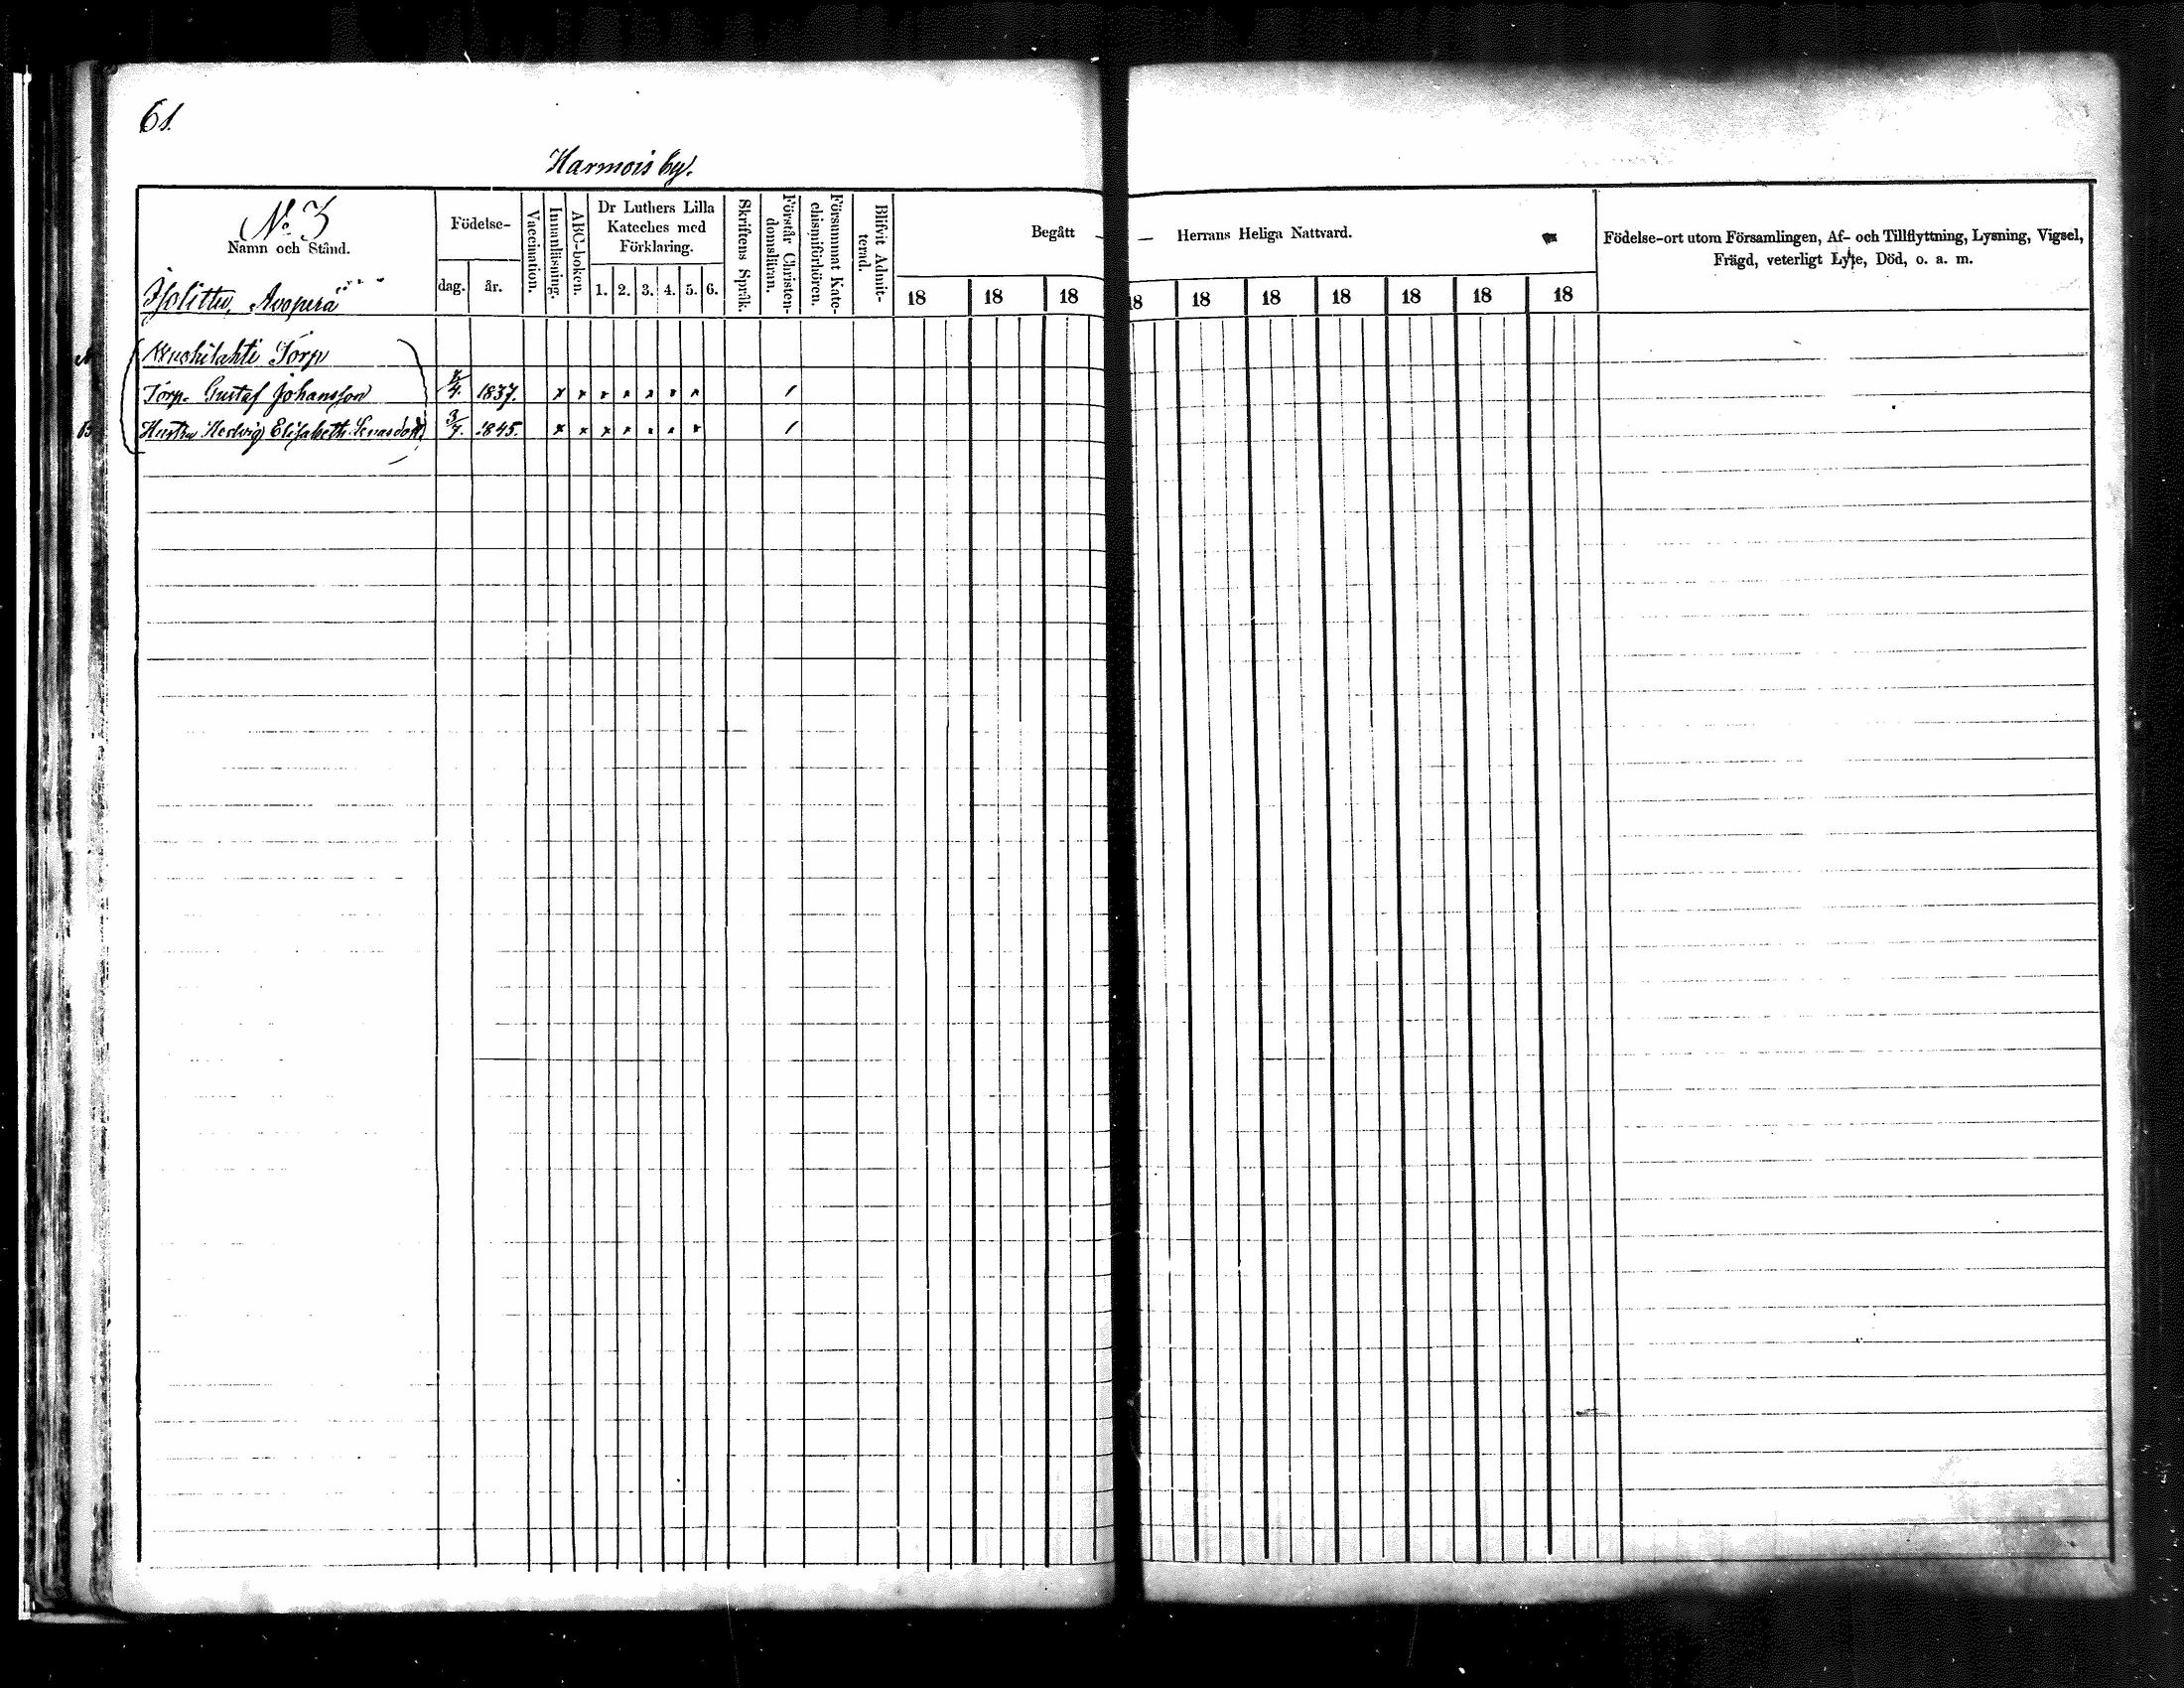 61.
Harmois by.
No 3
Namn och Stånd.
Isolittu, Avoperä
Födelse-
dag. år.
Vaccination.
Innanläsning.
ABC-boken.
Dr Luthers Lilla
Kateches med
Förklaring.
1. 2. 3. 4. 5. 6.
Skriftens Språk.
Förstår Christen-
domsläran.
Försummat Kate-
chismiförhören.
Blifvit Admit-
terad.
Begått — — Herrans Heliga Nattvard.
18 18 18 18 18 18 18 18 18 18
Födelse-ort utom Församlingen, Af- och Tillflyttning, Lysning, Vigsel,
Frägd, veterligt Lyte, Död, o. a. m.
Torp
Torp. Gustaf Johansson 1837. x x x x x x x x /
Hustru Hedvig Elisabeth 3/7. 1845. x x x x x x x x /